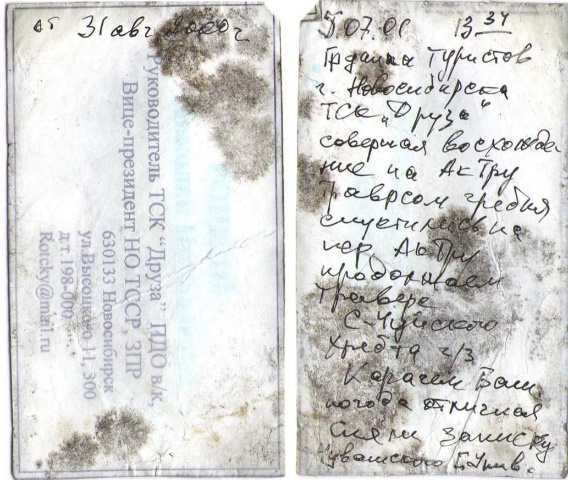 от 31 авг 2000г
Руководитель ТСК "Друза" ПДО в/к,
Вице-президент НО ТССР ЗПР
630133 Новосибирск
ул.Высоцкого 11, 300
д.т. 198-000
Rotcky@mail.ru
5.07.01 13 34
Группа Туристов
г. Новосибирска
ТСК "Друза"
соверная восхожде
ние на АкТру
Траверсом гребня
спустились на
пер. АкТру
продолжаем
Траверс
С-Чуйского
хребта ч/з
Карагем Баши
погода отличная
Сняли записку
Чувашского Г.Унив.